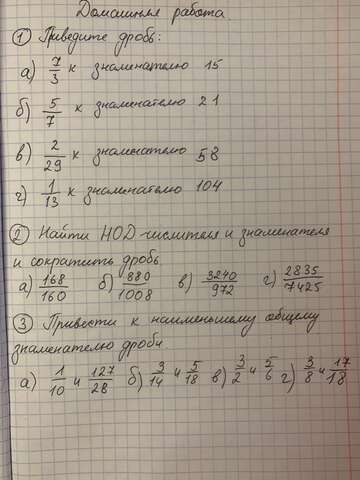 Домашняя работа
① Приведите дробь:
а) 7/3 к знаменателю 15
б) 5/7 к знаменателю 21
в) 2/29 к знаменателю 58
г) 1/13 к знаменателю 104
② Найти НОД числителя и знаменателя
и сократить дробь
а) 168/160 б) 880/1008 в) 3240/972 г) 2835/7425
③ Привести к наименьшему общему
знаменателю дроби
а) 1/10 и 127/28 б) 3/14 и 5/18 в) 3/2 и 5/6 г) 3/8 и 17/18